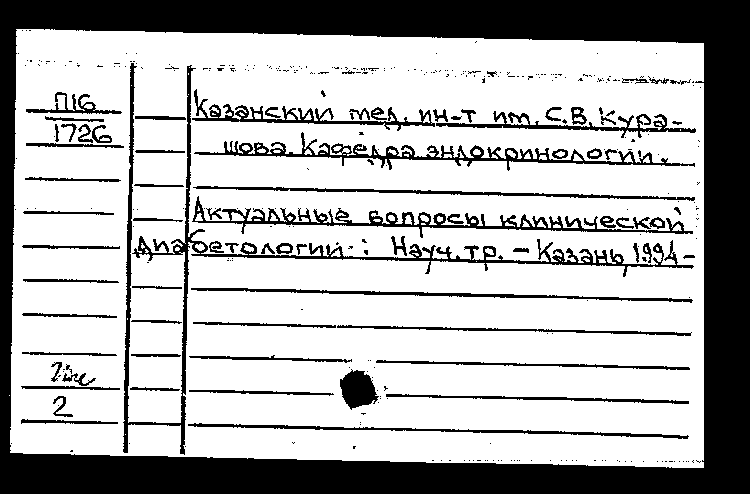 П16
1726
Казанский мед. ин-т им. С.В. Кура-
шова. Кафедра эндокринологии.
Актуальные вопросы клинической
диабетологии : Науч. тр. - Казань, 1994-
2